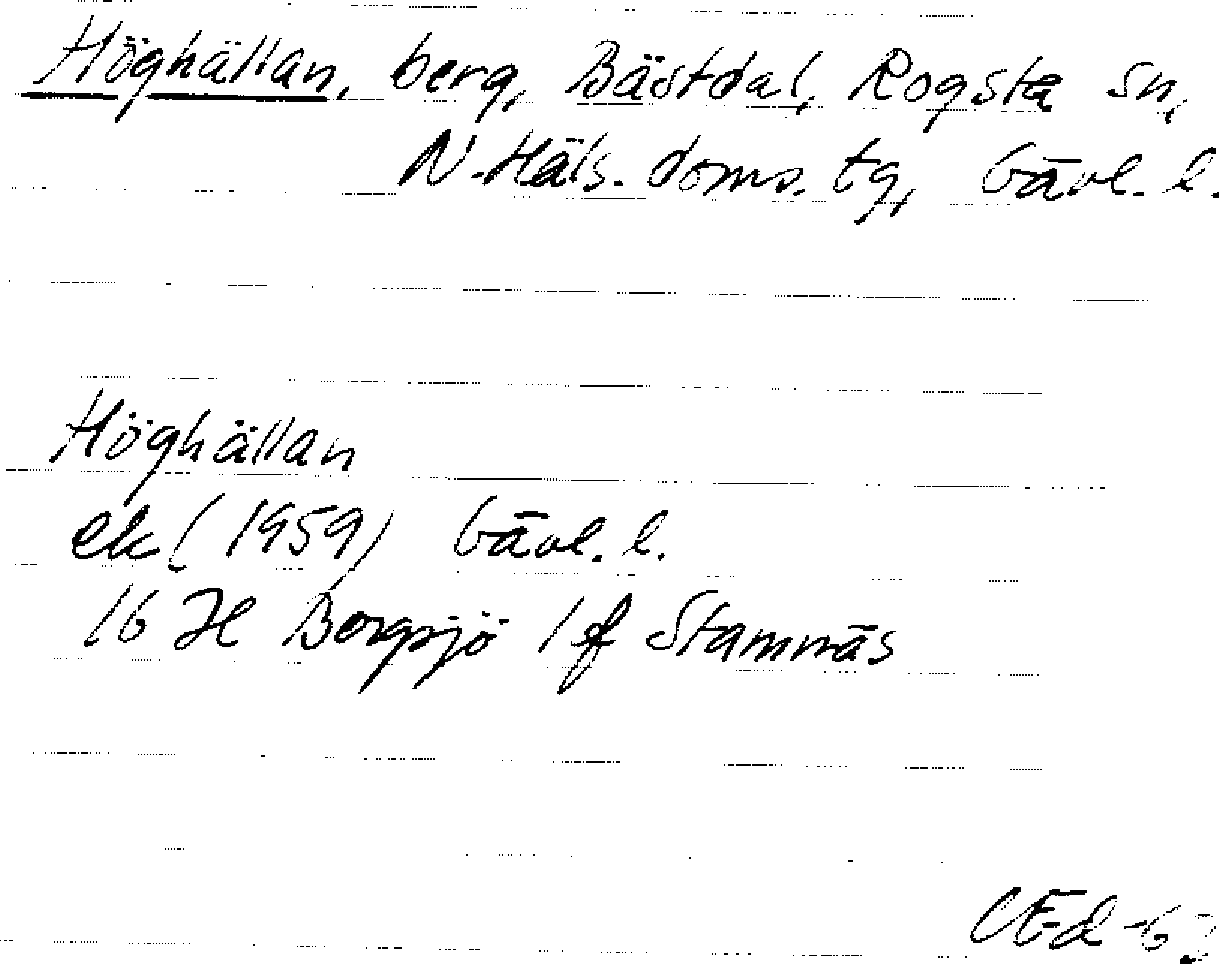 Höghällan, berg, Bästdal, Rogsta sn,
N. Häls. doms. tg, Gävl. l.
Höghällan
ek (1959) Gävl. l.
16 H Bergsjö 1 f Stamnäs
CEd